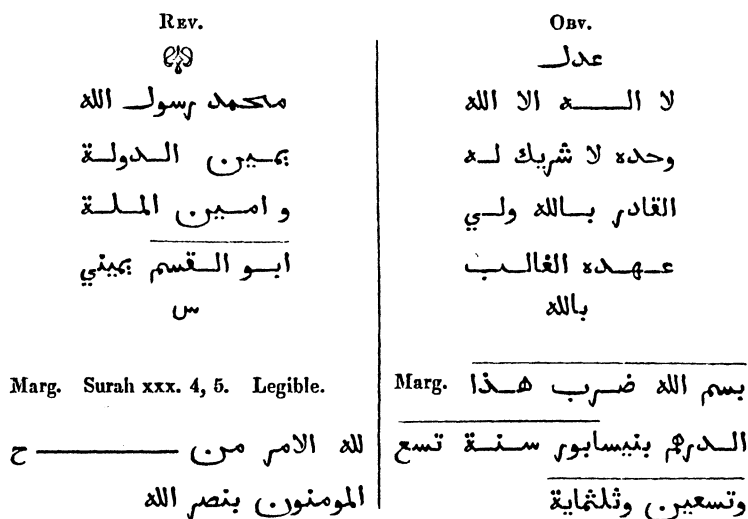 REV.
محمد رسول الله
يمين الدولة
و امين الملة
ابو القسم يميني
س
Marg. Surah xxx. 4, 5. Legible.
لله الامر من ح
المومنون بنصر الله
OBV.
عدل
لا اله الا الله
وحده لا شريك له
القادر بالله ولي
عهده الغالب
بالله
Marg. بسم الله ضرب هذا
الدرهم بنيسابور سنة تسع
وتسعين وثلثماية